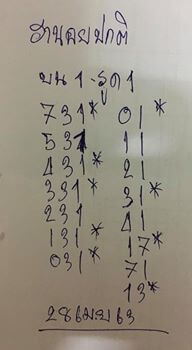 ฮานอยปกติ
บน 1 - รูด 1
731* 01*
531 11
431* 21
331* 31*
231 41
131* 17*
031* 71
13*
28 เมย 63